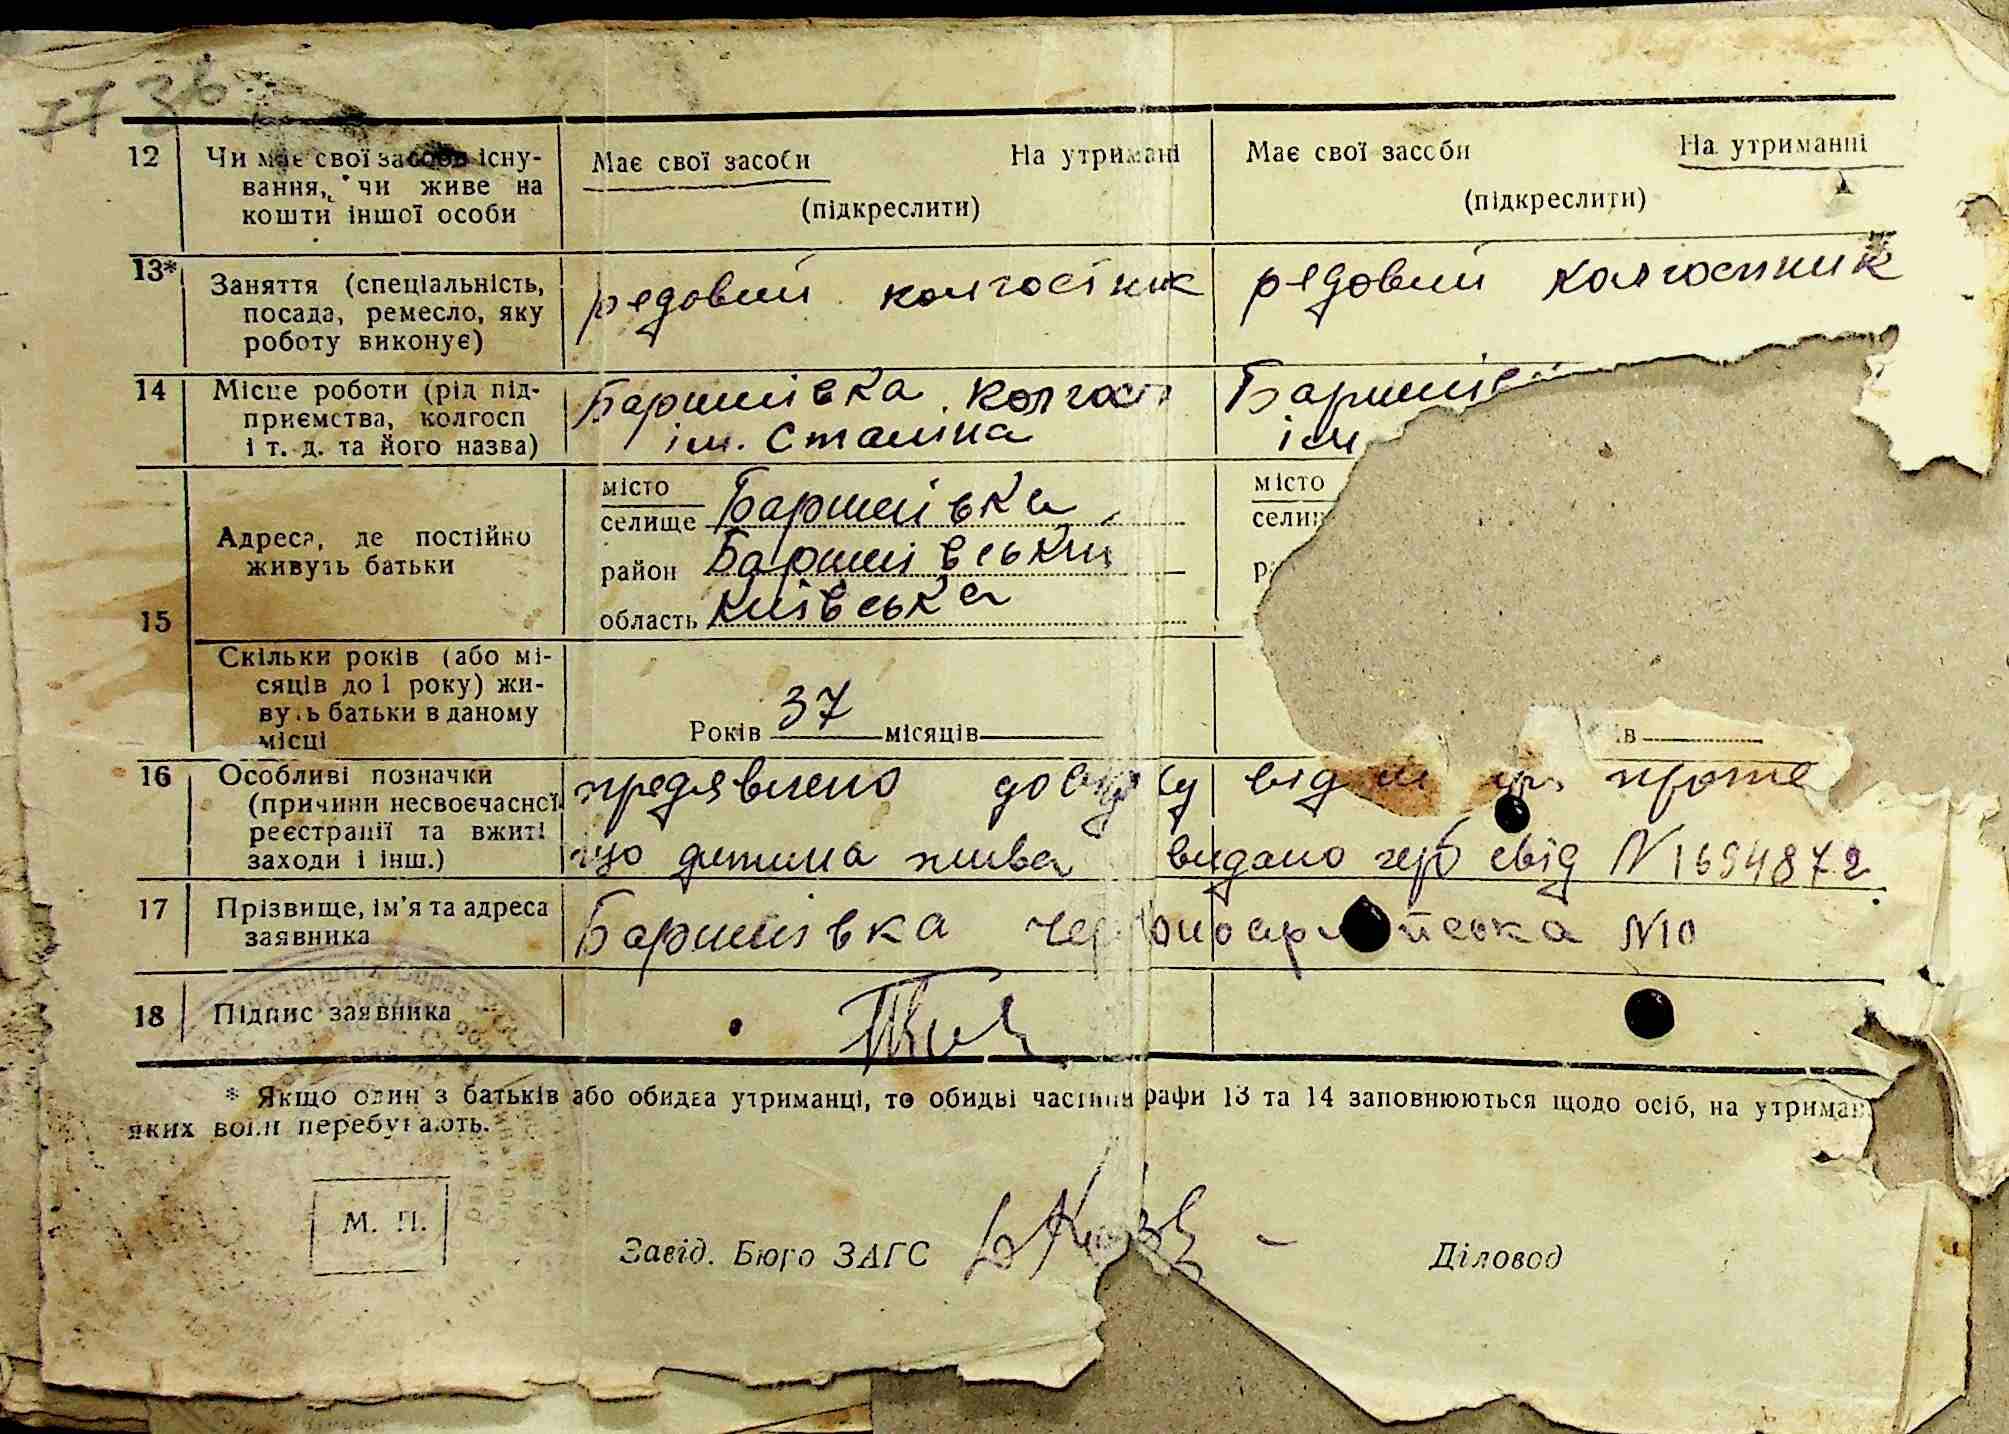 12 Чи має свої засоби існу- Має свої засоби На утримані Має свої засоби На утриманні
вання, чи живе на
кошти іншої особи (підкреслити) (підкреслити)
13* Заняття (спеціальність, редовий колгоспник редовий колгоспник
посада, ремесло, яку
роботу виконує)
14 Місце роботи (рід під- Баришівка колгосп Баришів
приємства, колгосп
і т. д. та його назва) ім. Сталіна ім
місто місто
селище Баришівка
Адреса, де постійно
живуть батьки район Баришівський
15 область Київська
Скільки років (або мі-
сяців до 1 року) жи-
вуть батьки в даному Років 37 місяців ів
місці
16 Особливі позначки предявлено довідку від
(причини несвоєчасної
реєстрації та вжиті
заходи і інш.) що дитина жива видано герб свід N 1694872
17 Прізвище, ім'я та адреса Баришівка червоноармійська N10
заявника
18 Підпис заявника
* Якщо один з батьків або обидва утриманці, то обидві частини рафи 13 та 14 заповнюються щодо осіб, на утриман
яких вони перебувають.
М. П.
Завід. Бюро ЗАГС Діловод